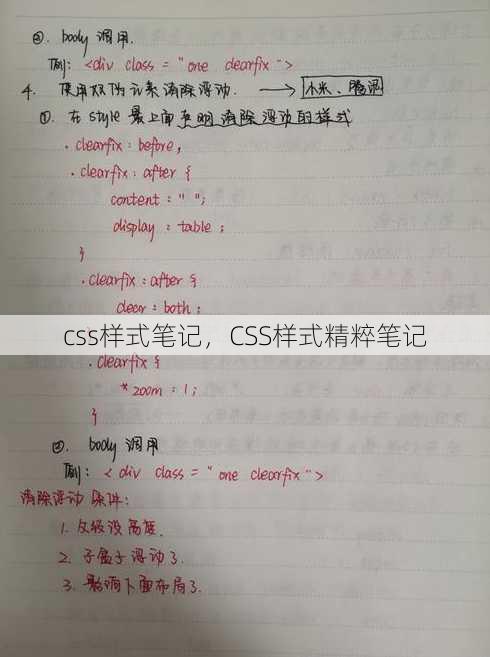 ②. body 调用.
例: <div class = "one clearfix">
4. 使用双伪元素清除浮动. → 小米、腾讯
①. 在 style 最上面声明 清除浮动的样式
.clearfix:before,
.clearfix:after {
content: " ";
display: table;
}
.clearfix:after {
clear: both;
css样式笔记，CSS样式精粹笔记
.clearfix {
*zoom: 1;
}
②. body 调用
例: < div class = " one clearfix ">
清除浮动条件:
1. 父级没高度.
2. 子盒子浮动了.
3. 影响下面布局了.